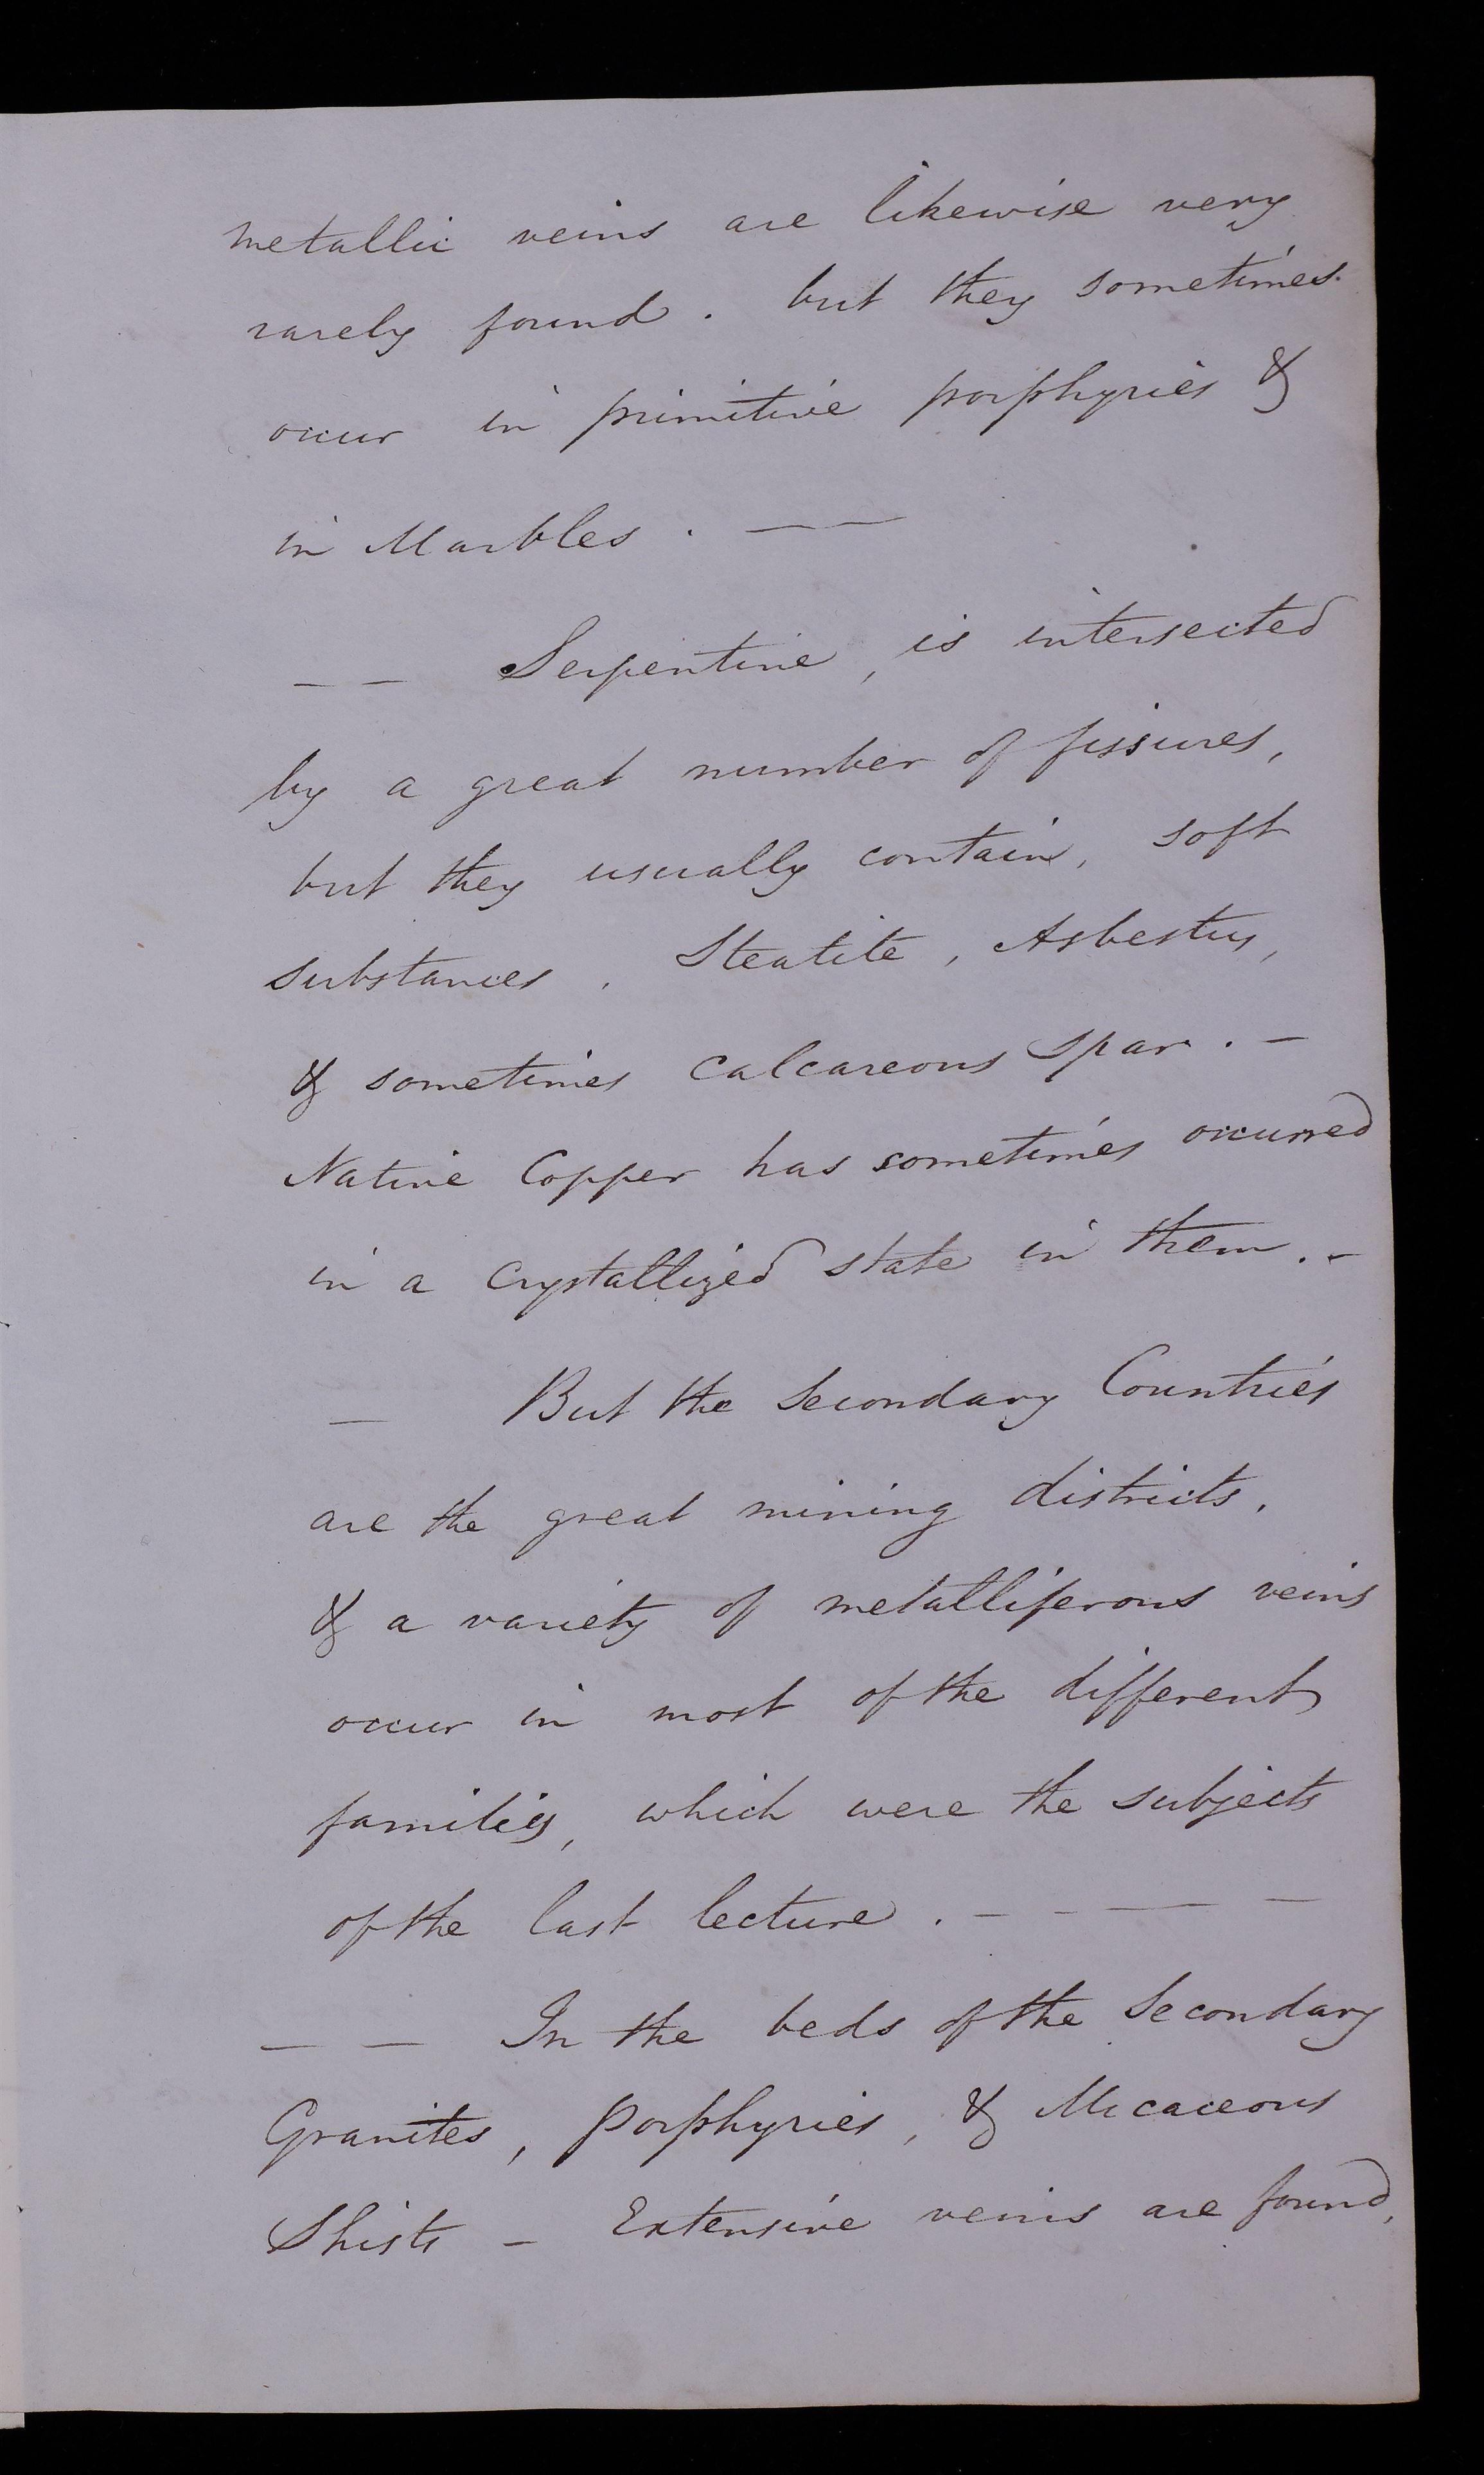 metallic veins are likewise very
rarely found. but they sometimes
occur in primitive porphyries &
in Marbles. — —
— — Serpentine, is intersected
by a great number of fissures,
but they usually contain, soft
substances. Steatite, Asbestus,
& sometimes Calcareous Spar. —
Native Copper has sometimes occurred
in a Crystallized state in them. —
— But the Secondary Countries
are the great mining districts,
& a variety of metalliferous veins
occur in most of the different
families, which were the subjects
of the last lecture. — — — —
— — In the beds of the Secondary
Granites, Porphyries, & Micaceous
Shists — Extensive veins are found,